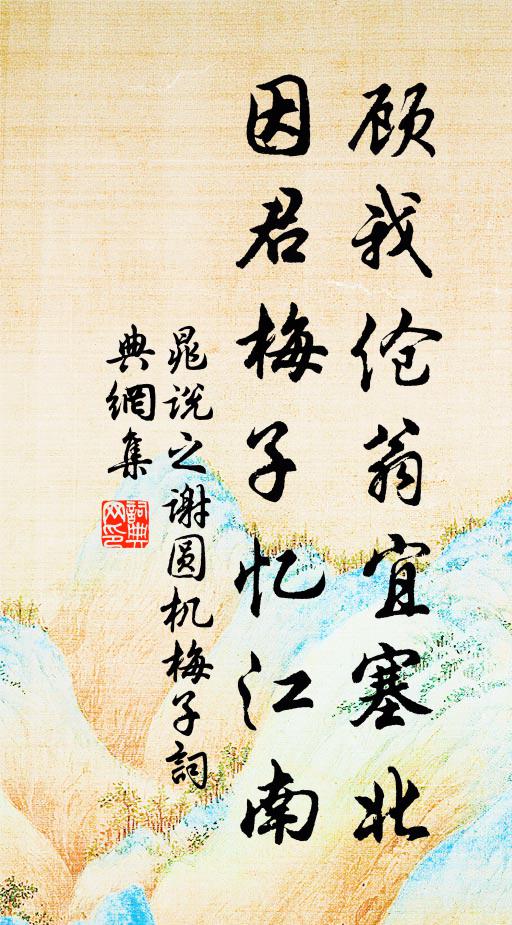 顾我伧翁宜塞北
因君梅子忆江南
晁说之谢圆机梅子詞
典網集
詞典网印